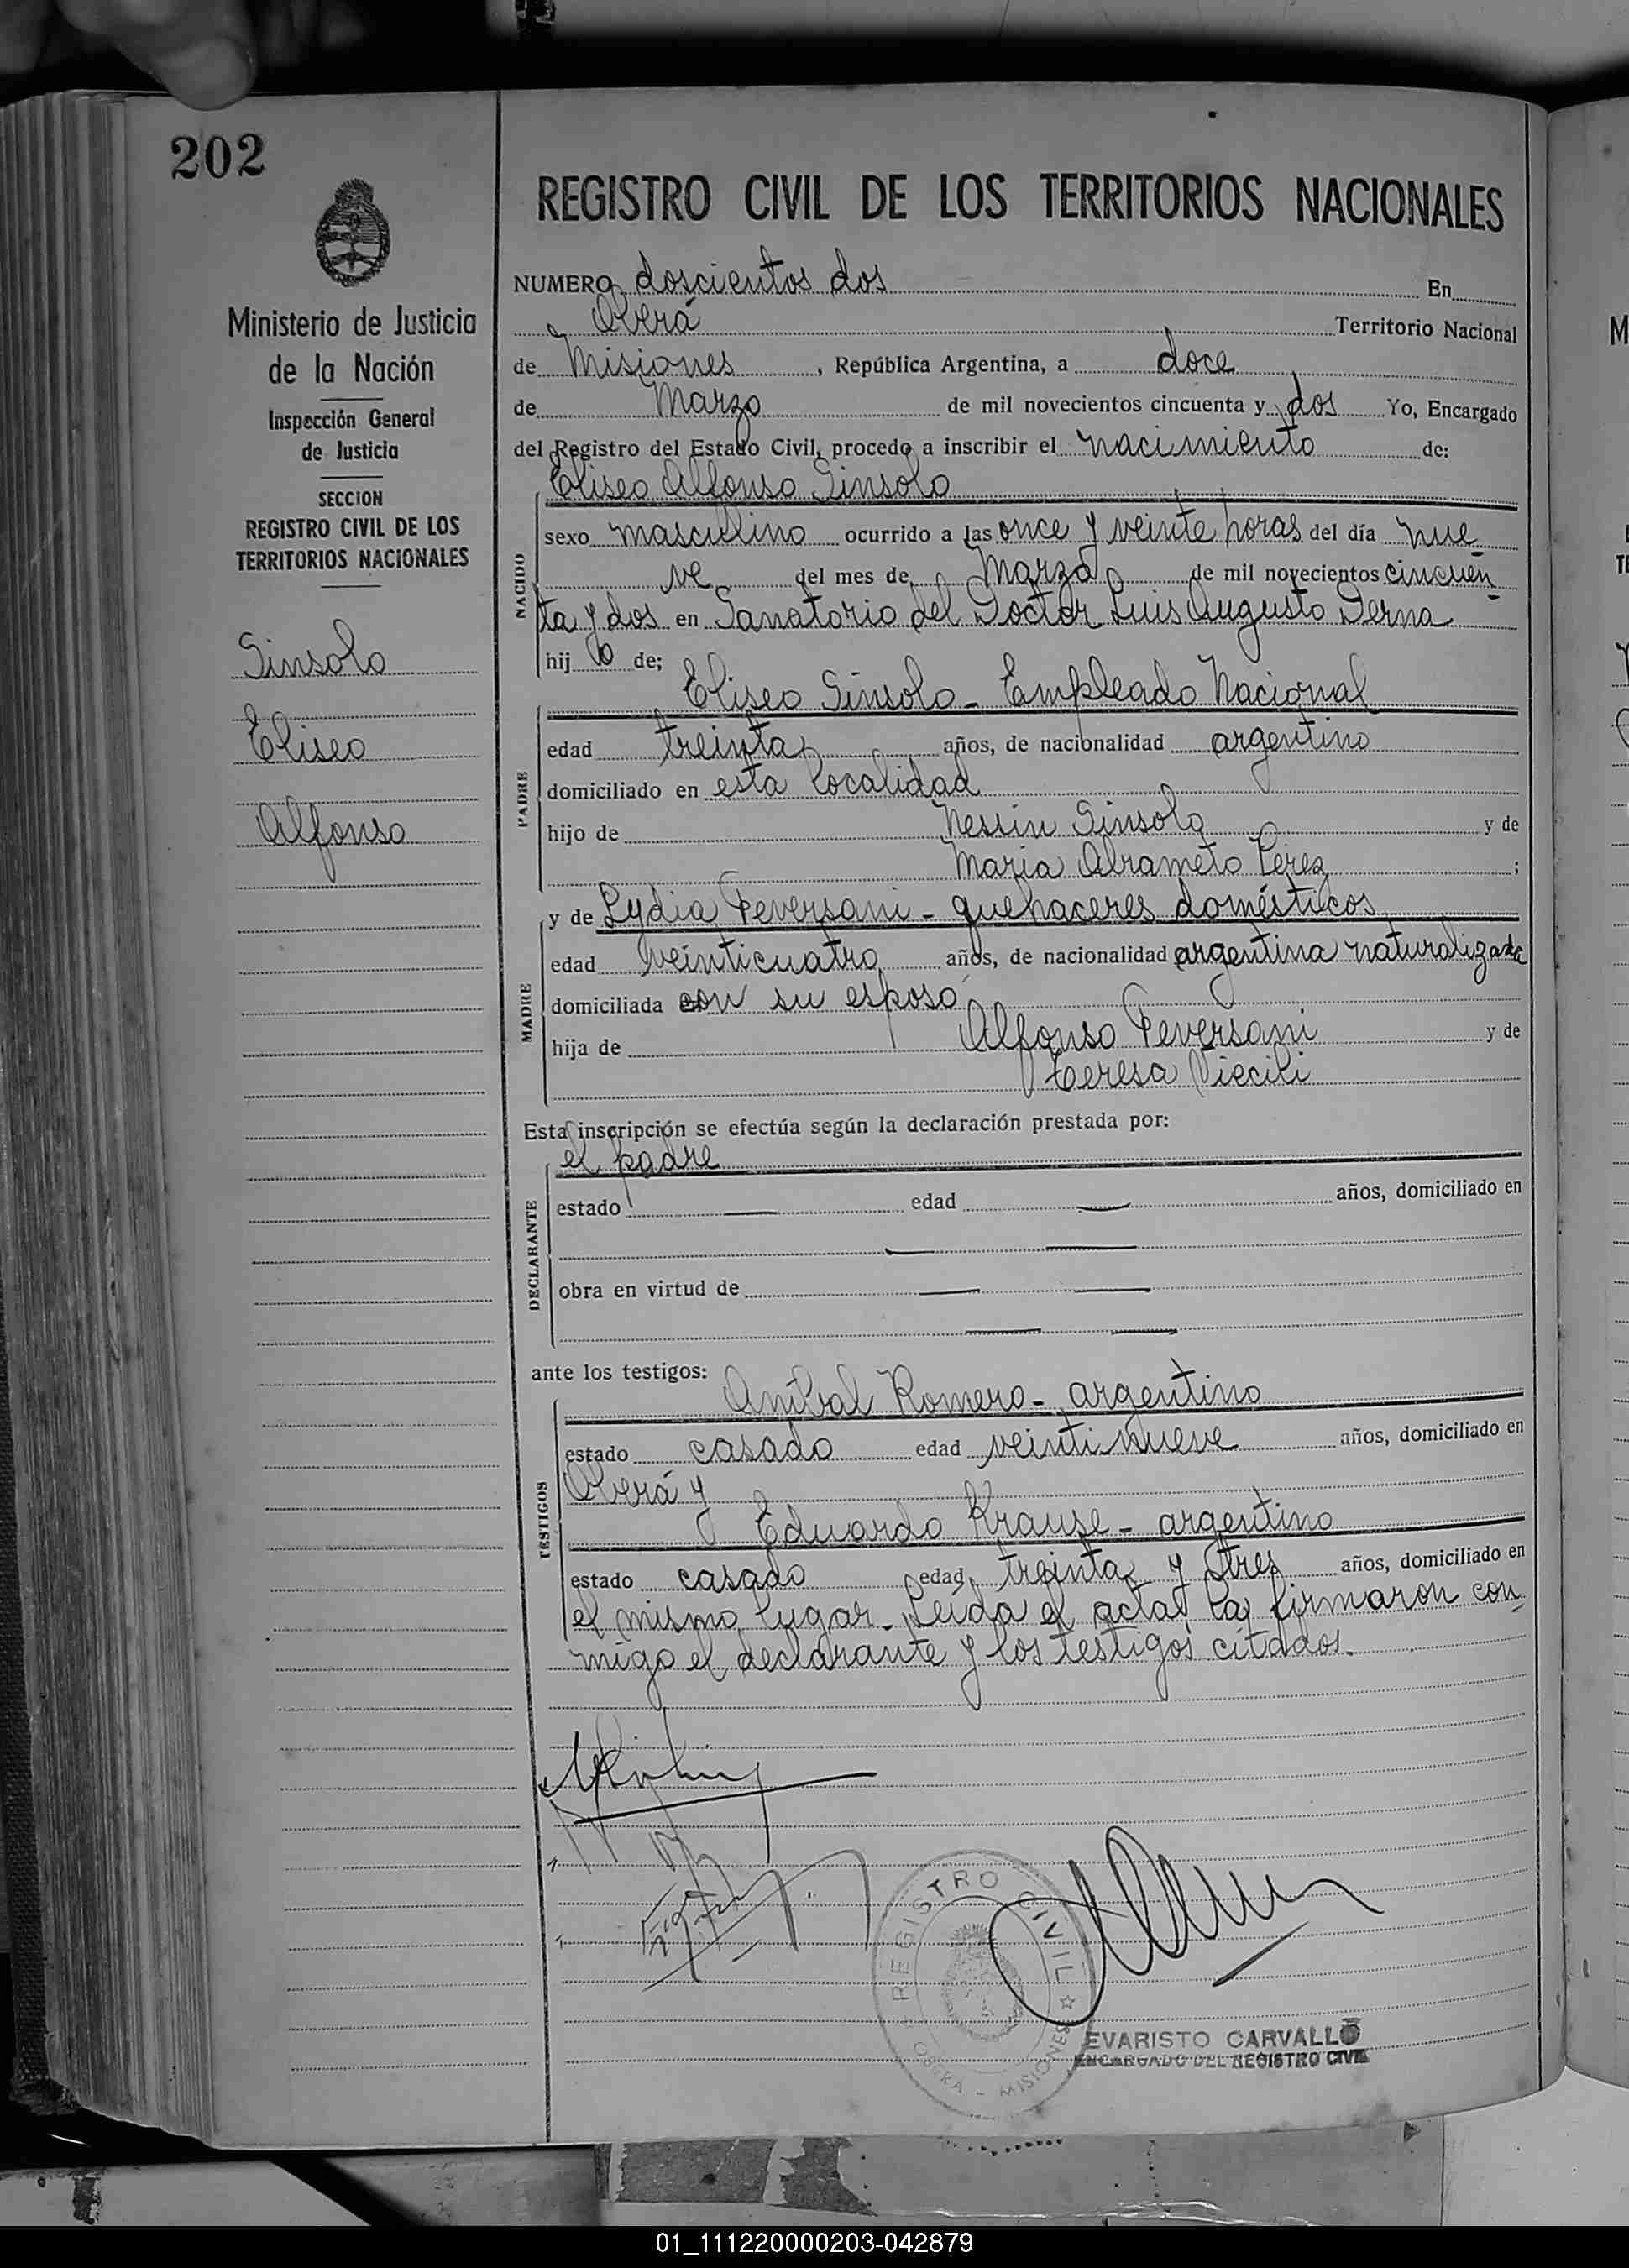 202
Ministerio de Justicia
de la Nación
Inspección General
de Justicia
SECCION
REGISTRO CIVIL DE LOS
TERRITORIOS NACIONALES
Sinsolo
Eliseo
Alfonso
REGISTRO CIVIL DE LOS TERRITORIOS NACIONALES
NUMERO doscientos dos En
Oberá Territorio Nacional
de Misiones, República Argentina, a doce
de Marzo de mil novecientos cincuenta y dos Yo, Encargado
del Registro del Estado Civil, procedo a inscribir el nacimiento de:
Eliseo Alfonso Sinsolo
NACIDO
sexo masculino ocurrido a las once y veinte horas del día nue-
ve del mes de Marzo de mil novecientos cincuen-
ta y dos en Sanatorio del Doctor Luis Augusto Derna
hijo de;
Eliseo Sinsolo - Empleado Nacional
PADRE
edad treinta años, de nacionalidad argentino
domiciliado en esta localidad
hijo de Nessin Sinsolo y de
Maria Abrameto Perez ;
y de Lydia Peversani - quehaceres domésticos
MADRE
edad veinticuatro años, de nacionalidad argentina naturalizada
domiciliada con su esposo
hija de Alfonso Peversani y de
Teresa Viecili
Esta inscripción se efectúa según la declaración prestada por:
el padre
DECLARANTE
estado — edad — años, domiciliado en
— —
obra en virtud de — —
— —
ante los testigos:
Anibal Romero - argentino
TESTIGOS
estado casado edad veintinueve años, domiciliado en
Oberá y
Eduardo Krause - argentino
estado casado edad treinta y tres años, domiciliado en
el mismo lugar - Leida el acta la firmaron con-
migo el declarante y los testigos citados.
REGISTRO CIVIL
OBERA - MISIONES
EVARISTO CARVALLO
ENCARGADO DEL REGISTRO CIVIL
01_111220000203-042879